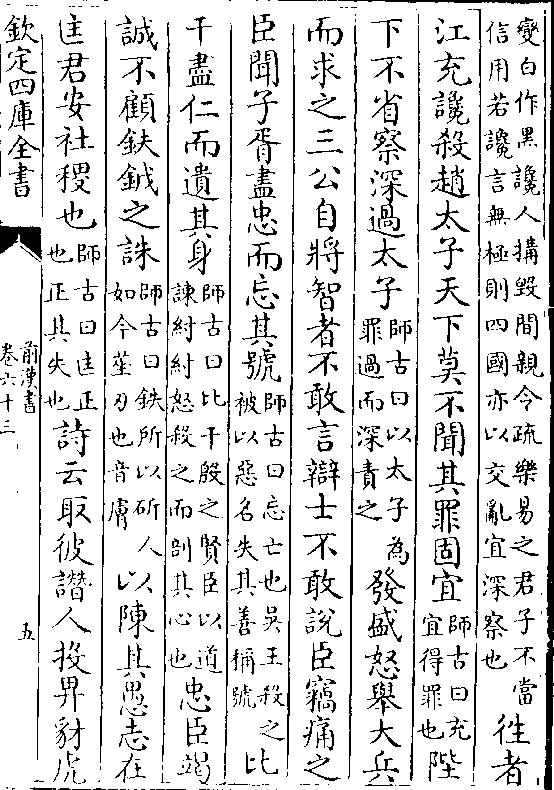 變白作黑讒人搆毀間親令疏樂易之君子不當
信用若讒言無極則四國亦以交亂宜深察也
往者
江充讒殺趙太子天下莫不聞其罪固宜
師古曰充
宜得罪也
陛
下不省察深過太子
師古曰以太子為
罪過而深責之
發盛怒舉大兵
而求之三公自將智者不敢言辯士不敢說臣竊痛之
臣聞子胥盡忠而忘其號
師古曰忘亡也吳王殺之
被以惡名失其善稱號
比
干盡仁而遺其身
師古曰比干殷之賢臣以道
諫紂紂怒殺之而剖其心也
忠臣竭
誠不顧鈇鉞之誅
師古曰鈇所以斫人
如今莝刃也音膚
以陳其愚志在
匡君安社稷也
師古曰匡正
也正其失也
詩云取彼譖人投畀豺虎
欽定四庫全書
前漢書
卷六十三
五